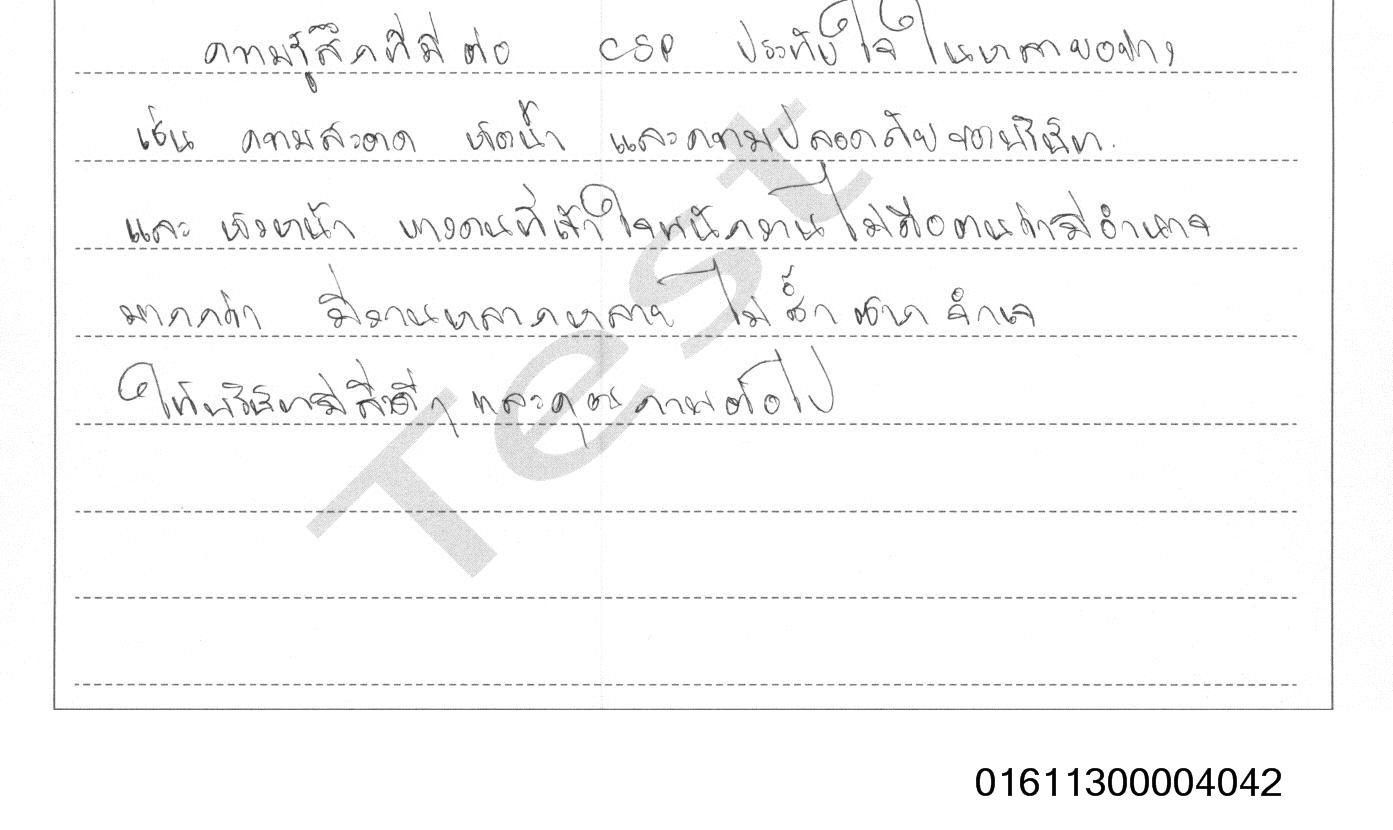 ความรู้สึกที่มีต่อ CSP ประทับใจในหลายอย่าง
เช่น ความสะอาด ห้องน้ำ และความปลอดภัยของบริษัท.
และ หัวหน้า บางคนที่เข้าใจพนักงานไม่ถือตนว่ามีอำนาจ
มากกว่า มีงานหลากหลาย ไม่ซ้ำซากจำเจ
ให้บริษัทมีสิ่งดีๆ และคุณภาพต่อไป
Test
01611300004042